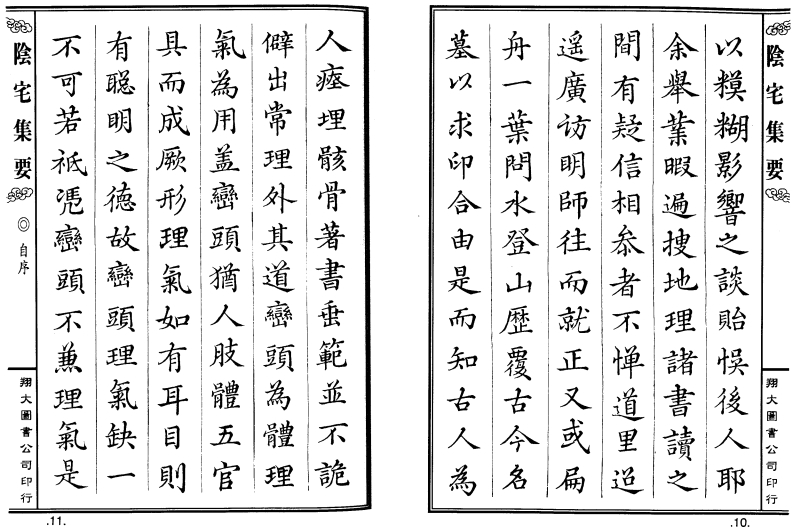 陰宅集要
以糢糊影響之談貽悞後人耶
余舉業暇遍搜地理諸書讀之
間有疑信相叅者不憚道里迢
遥廣访明師往而就正又或扁
舟一葉問水登山歷覆古今名
墓以求印合由是而知古人為
翔大圖書公司印行
.10.
人瘞埋骸骨著書垂範並不詭
僻出常理外其道巒頭為體理
氣為用盖巒頭猶人肢體五官
具而成厥形理氣如有耳目則
有聡明之德故巒頭理氣缺一
不可若祗凭巒頭不兼理氣是
陰宅集要
◎自序
翔大圖書公司印行
.11.